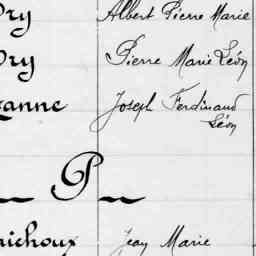 Dry Albert Pierre Marie
Dry Pierre Marie Léon
anne Joseph Ferdinand
Léon
P
ichoux Jean Marie